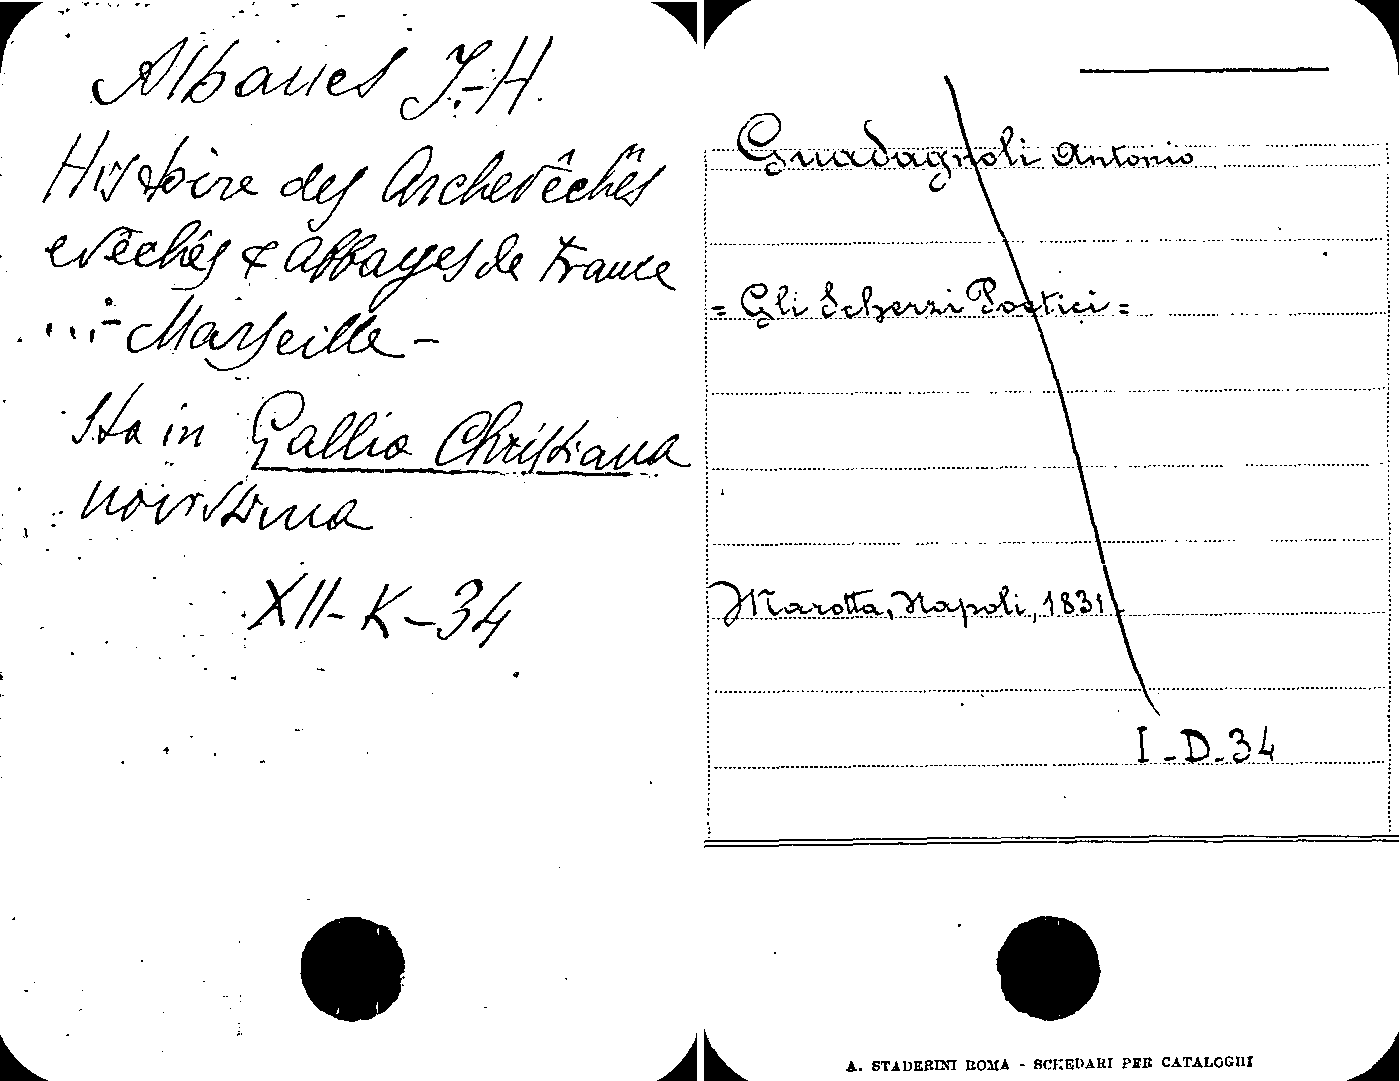 Albanes J.-H.
Histoire des Archevêchés
evêchés & abbayes de France
...- Marseille -
Sta in Gallia Christiana
novissima
XII-K-34
Guadagnoli Antonio
= Gli Scherzi Poetici =
Marotta, Napoli, 1831.
I-D-34
A. STADERINI ROMA - SCHEDARI PER CATALOGHI